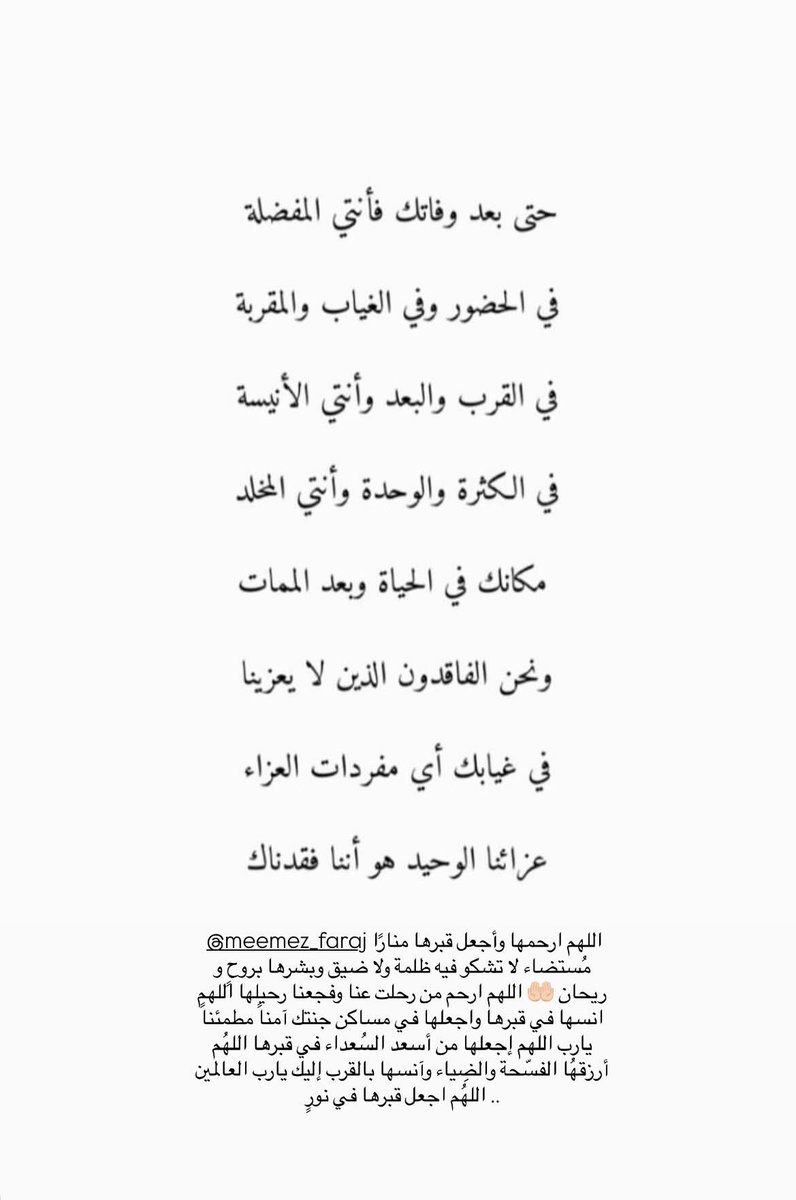 حتى بعد وفاتك فأنتي المفضلة
في الحضور وفي الغياب والمقربة
في القرب والبعد وأنتي الأنيسة
في الكثرة والوحدة وأنتي المخلد
مكانك في الحياة وبعد الممات
ونحن الفاقدون الذين لا يعزينا
في غيابك أي مفردات العزاء
عزائنا الوحيد هو أننا فقدناك
اللهم ارحمها وأجعل قبرها منارًا @meemez_faraj
مُستضاء لا تشكو فيه ظلمة ولا ضيق وبشرها بروحٍ و
ريحان 🤲🏻 اللهم ارحم من رحلت عنا وفجعنا رحيلها اللهم
انسها في قبرها واجعلها في مساكن جنتك آمناً مطمئناً
يارب اللهم إجعلها من أسعد السُعداء في قبرها اللهُم
أرزقهُا الفسّحة والضِياء وآنسها بالقرب إليك يارب العالمين
.. اللهُم اجعل قبرها في نورٍ